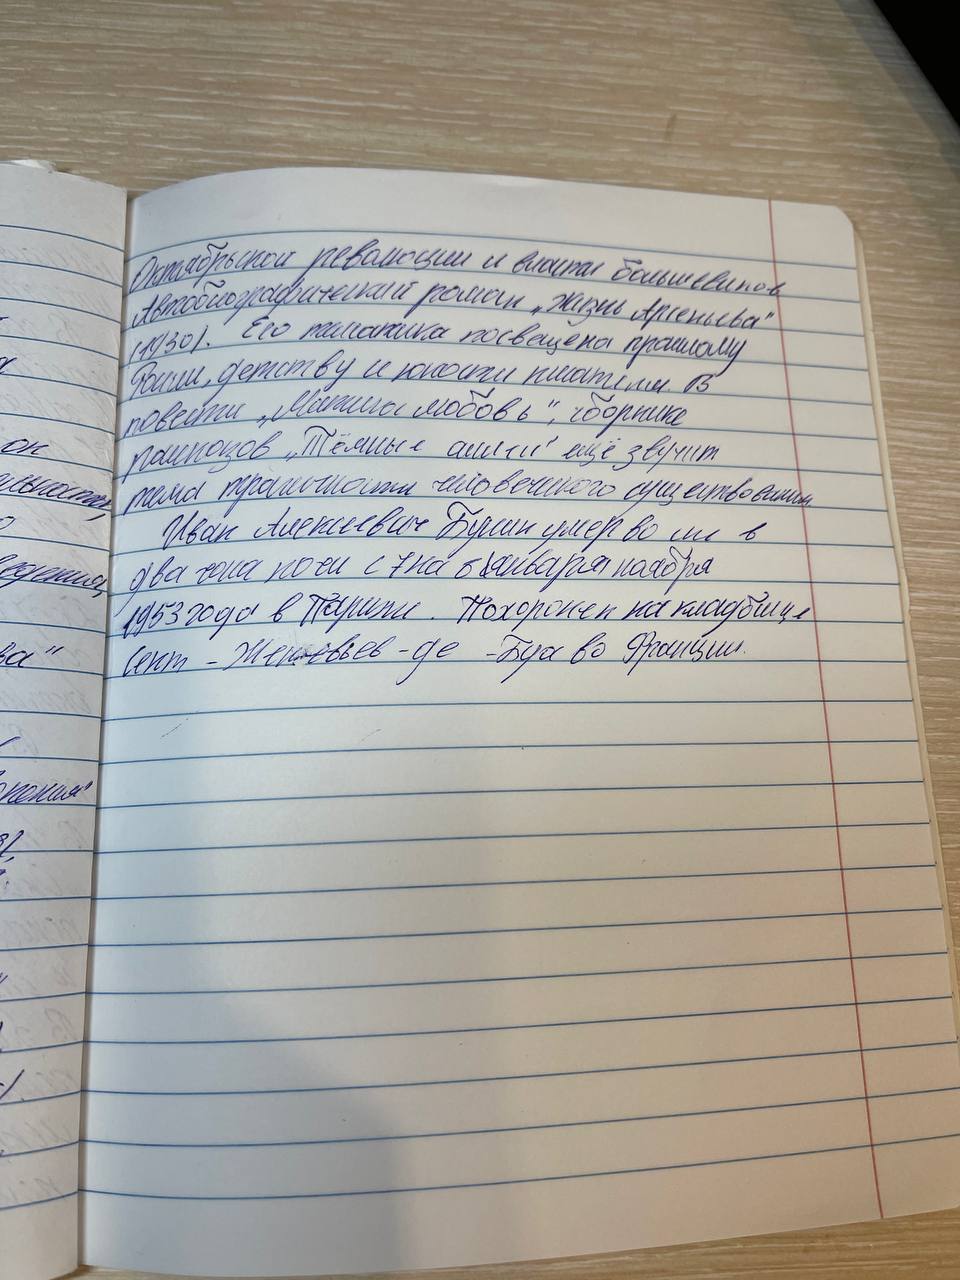 Октябрьской революции и власти большевиков
Автобиографический роман „Жизнь Арсеньева"
(1930). Его тематика посвещена прошлому
России, детству и юности писателя В
повести „Митина любовь", сборнике
рассказов „Тёмные аллеи" ещё звучит
тема трагичности человеческого существования.
Иван Алексеевич Бунин умер во сне в
два часа ночи с 7 на 8 ноября
1953 года в Париже. Похоронен на кладбище
Сент-Женевьев-де-Буа во Франции.
ок
ва"